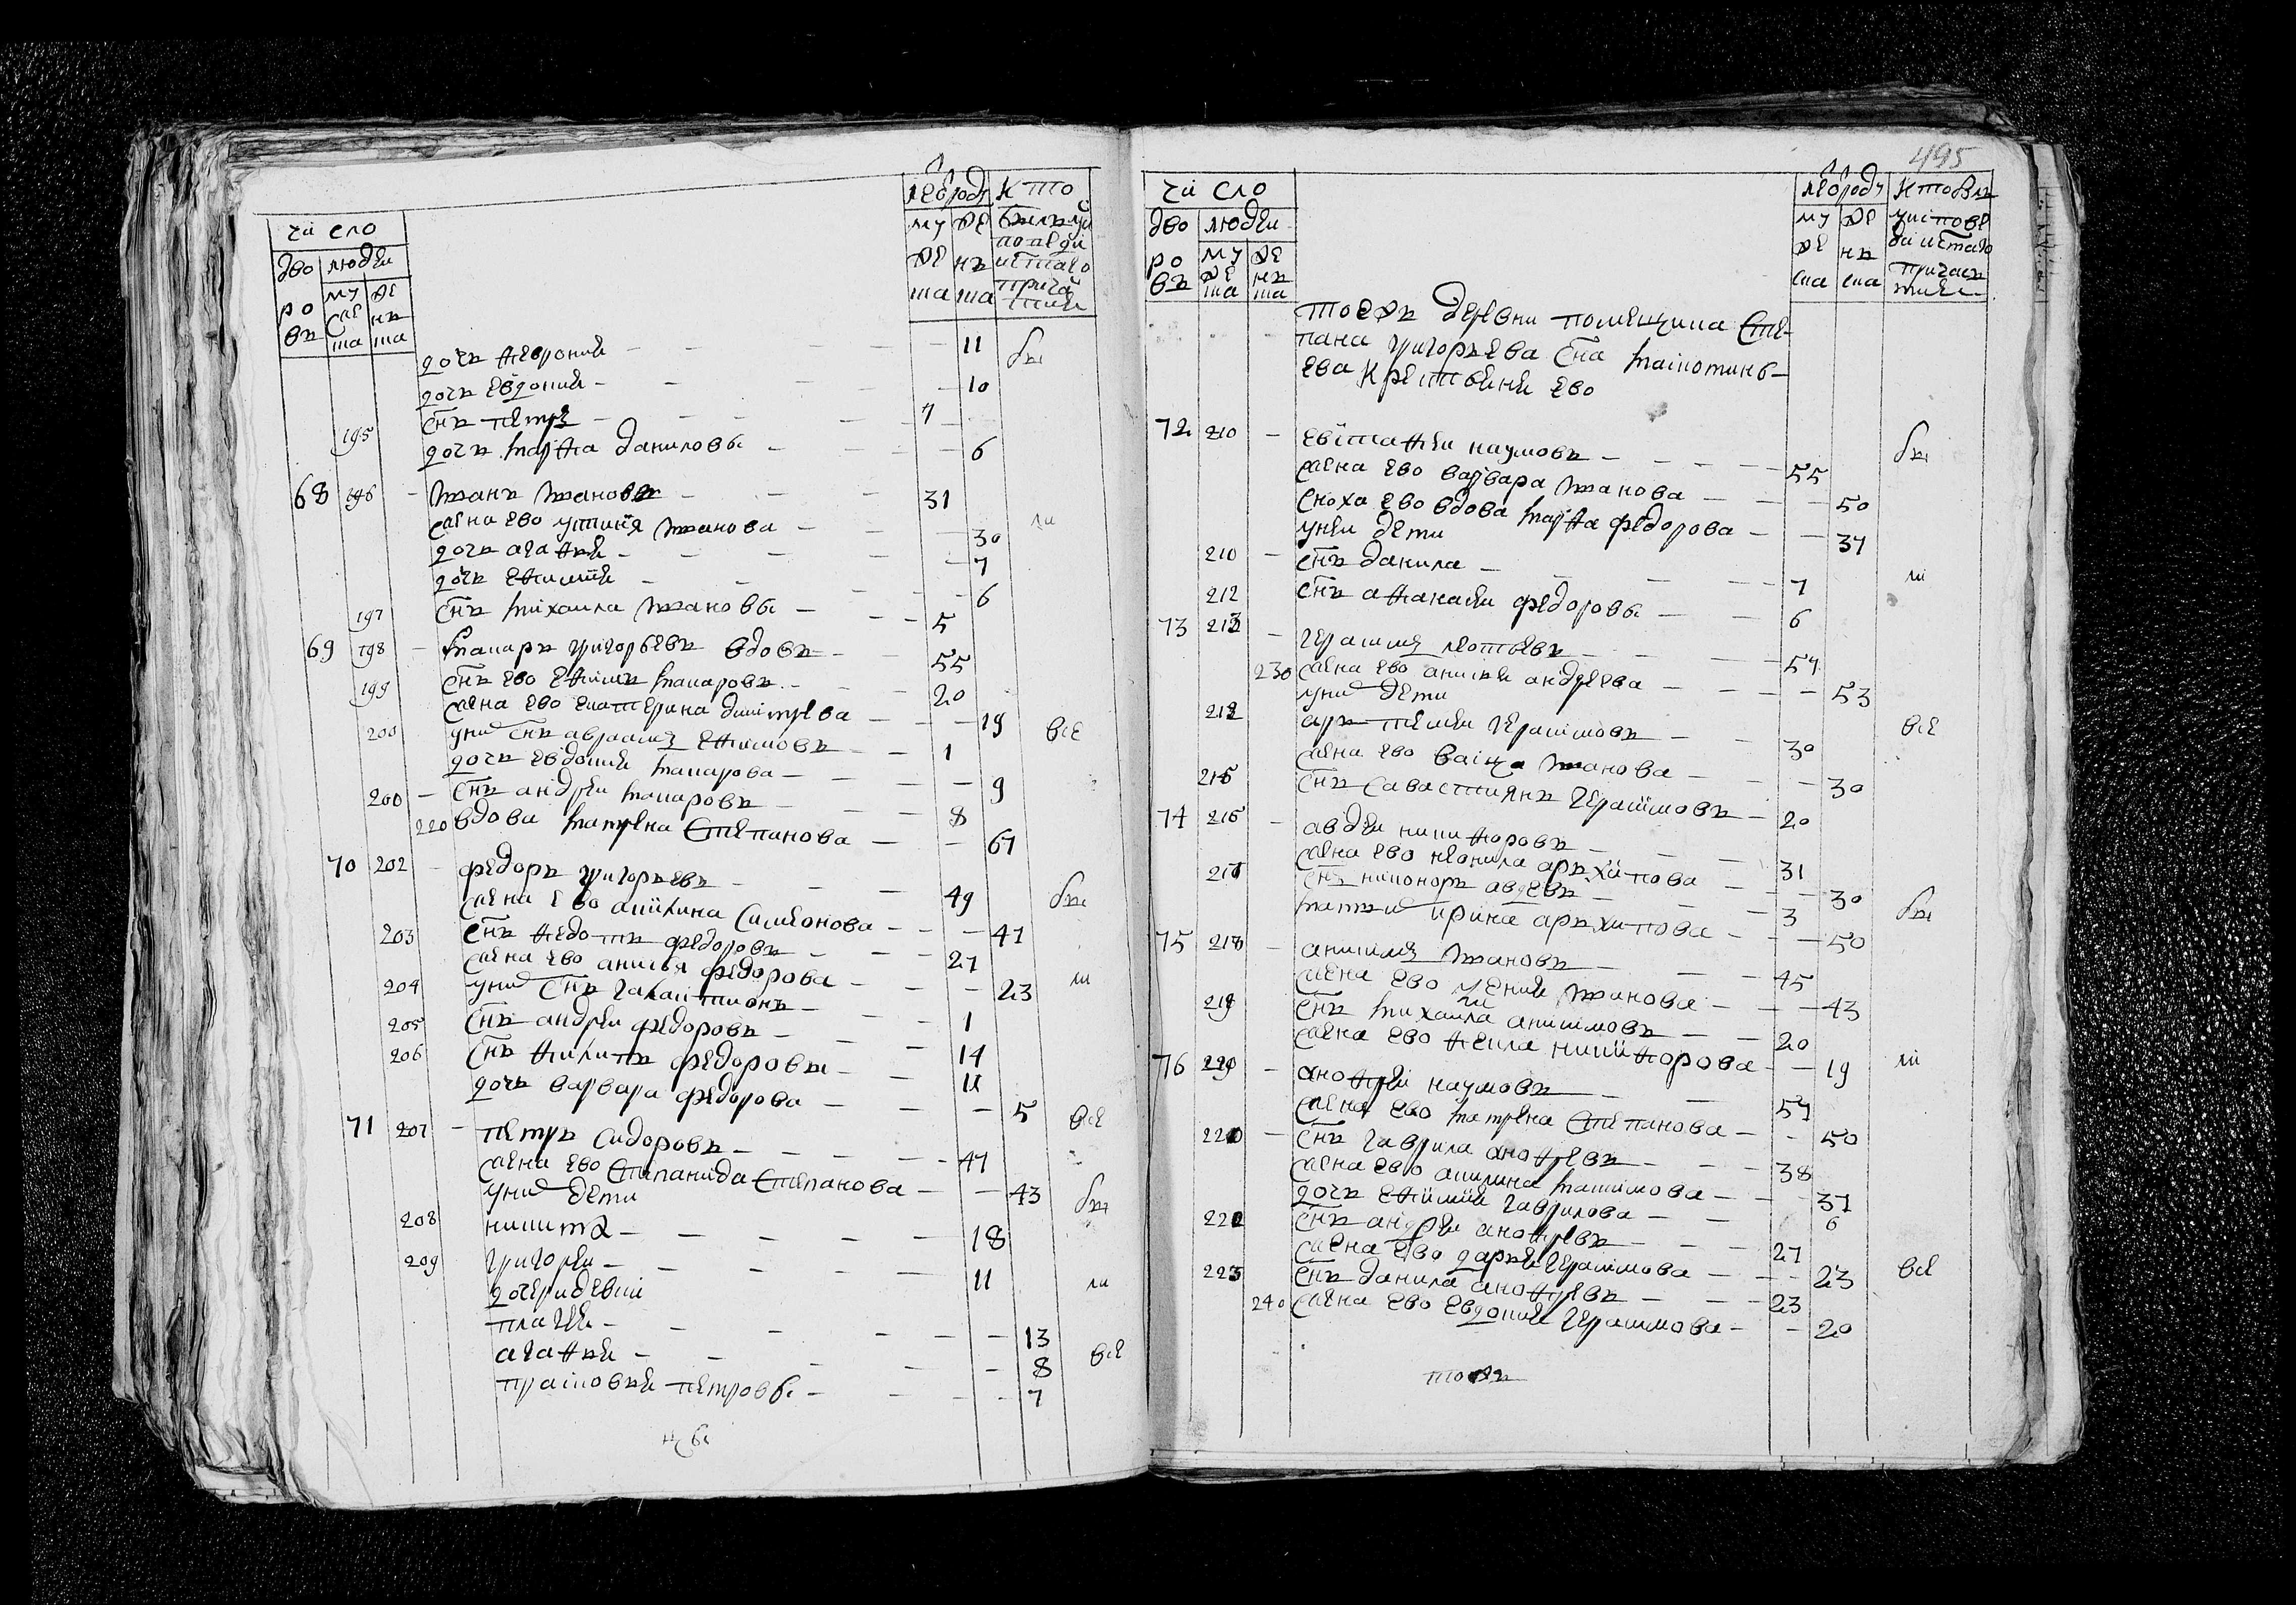 число
дво ровъ
людей
му жеска
же нска
лѣ[та] отъ роду
му жеска
же нска
кто былъ у исповеди и с[вя]таго причастия
дочь Феврония — 11
дочь Евдокия — 10
195 снъ Петръ — 7
дочь Марфа Даниловы — 6
68 196 Иванъ Ивановъ — 31
жена ево Устинья Иванова — 30
дочь Агафья — 7
дочь Ефимия — 6
197 снъ Михаила Ивановы — 5
69 198 Макаръ Григорьевъ вдовъ — 55
199 снъ ево Ефимъ Макаровъ — 20
жена ево Екатерина Дмитрева — 19
200 у них снъ Авраамъ Ефимовъ — 1
дочь Евдокия Макарова — 9
200 снъ Андрей Макаровъ — 8
220 вдова Матрена Степанова — 61
70 202 Федоръ Григорьевъ — 49
жена ево Акилина Симеонова — 47
203 снъ Федотъ Федоровъ — 27
жена ево Анисья Федорова — 23
204 у них снъ Галактионъ — 1
205 снъ Андрей Федоровъ — 14
206 снъ Филипъ Федоровы — 11
дочь Варвара Федорова — 5
71 207 Петръ Сидоровъ — 47
жена ево Степанида Степанова — 43
у них дети
208 Никита — 18
209 Григорей — 11
дочери девки
Плагея — 13
Агафья — 8
Прасковья Петровы — 7
495
число
дво ровъ
людей
му жеска
же нска
лѣ отъ роду
му жеска
же нска
тоежъ деревни помещика Сте-
пана Григорьева сна
ева крестьяне ево
72 210 Евстафей Наумовъ — 55
жена ево Варвара Иванова — 50
сноха ево вдова Марфа Федорова — 37
у неи дети
210 снъ Данила — 7
212 снъ Афанасей Федоровы — 6
73 213 Герасимъ Леонтьевъ — 57
230 жена ево Анисья Андреева — 53
у них дети
Артемей Герасимовъ — 30
жена ево Васса Иванова — 30
215 снъ Савастиянъ Герасимовъ — 20
74 216 Авдей Никифоровъ — 31
жена ево Неонила Архипова — 30
217 снъ Никоноръ Авдеевъ — 3
мать их Ирина Архипова — 50
75 218 Анисимъ Ивановъ — 45
жена ево Ксения Иванова — 43
219 снъ Михаила Анисимовъ — 20
жена ево Фекла Никифорова — 19
76 220 Анофрей Наумовъ — 57
жена ево Матрена Степанова — 50
снъ Гаврила Анофревъ — 38
жена ево Акилина Максимова — 37
дочь Ефимия Гаврилова — 6
222 снъ Андрей Анофревъ — 27
жена ево Дарья Герасимова — 23
223 снъ Данила Анофревъ — 23
240 жена ево Евдокия Герасимова — 20
тоежъ